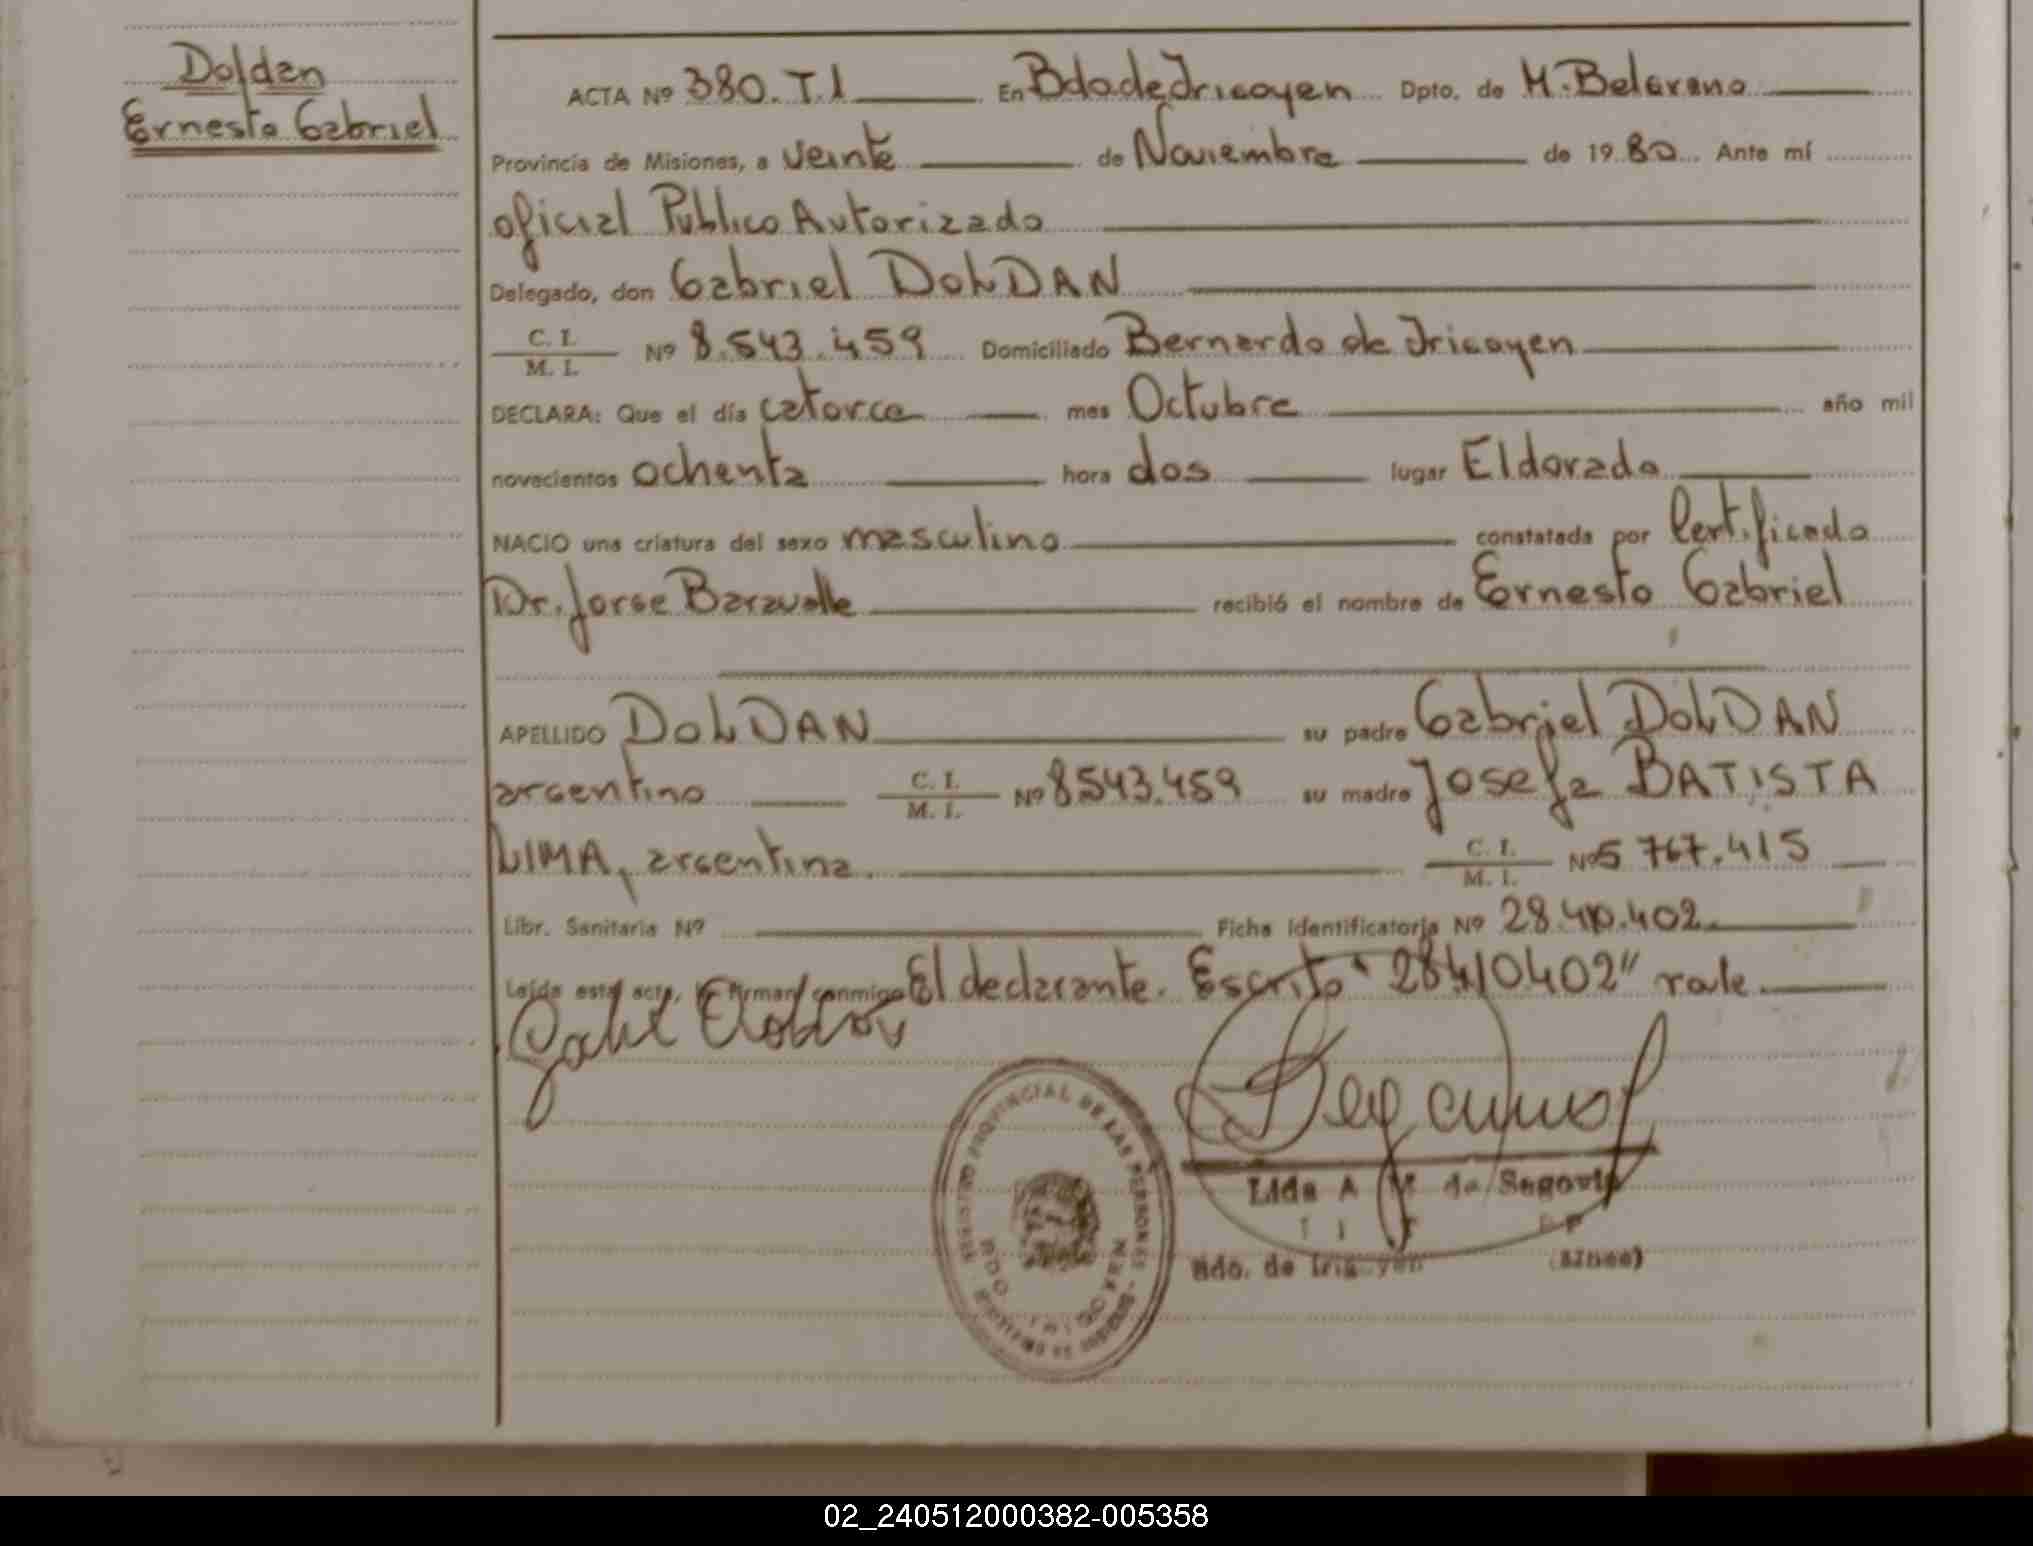 Doldan
Ernesto Gabriel
ACTA Nº 380. T.I En Bdo de Irigoyen Dpto. de M. Belgrano
Provincia de Misiones, a veinte de Noviembre de 1980 Ante mí
oficial Público Autorizado
Delegado, don Gabriel DOLDAN
C. I. / M. I. Nº 8.543.459 Domiciliado Bernardo de Irigoyen
DECLARA: Que el día catorce mes Octubre año mil
novecientos ochenta hora dos lugar Eldorado
NACIO una criatura del sexo masculino constatada por Certificado
Dr. Jorge Baravalle recibió el nombre de Ernesto Gabriel
APELLIDO DOLDAN su padre Gabriel DOLDAN
argentino C. I. / M. I. Nº 8.543.459 su madre Josefa BATISTA
LIMA, argentina. C. I. / M. I. Nº 5.767.415
Libr. Sanitaria Nº Ficha Identificatoria Nº 28.410.402
Leída esta acta, la firman conmigo El declarante. Escrito "28410402" vale
REGISTRO PROVINCIAL DE LAS PERSONAS
BDO. IRIGOYEN
Lida A M de Segovia
Bdo. de Irigoyen (Mnes)
02_240512000382-005358